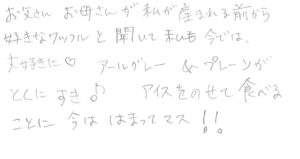 お父さん お母さんが 私が 産まれる前から
好きなワッフル と 聞いて 私も 今では、
大好きに♡ アールグレー & プレーンが
とくに すき♪ アイスをのせて 食べる
ことに 今は はまってマス!!